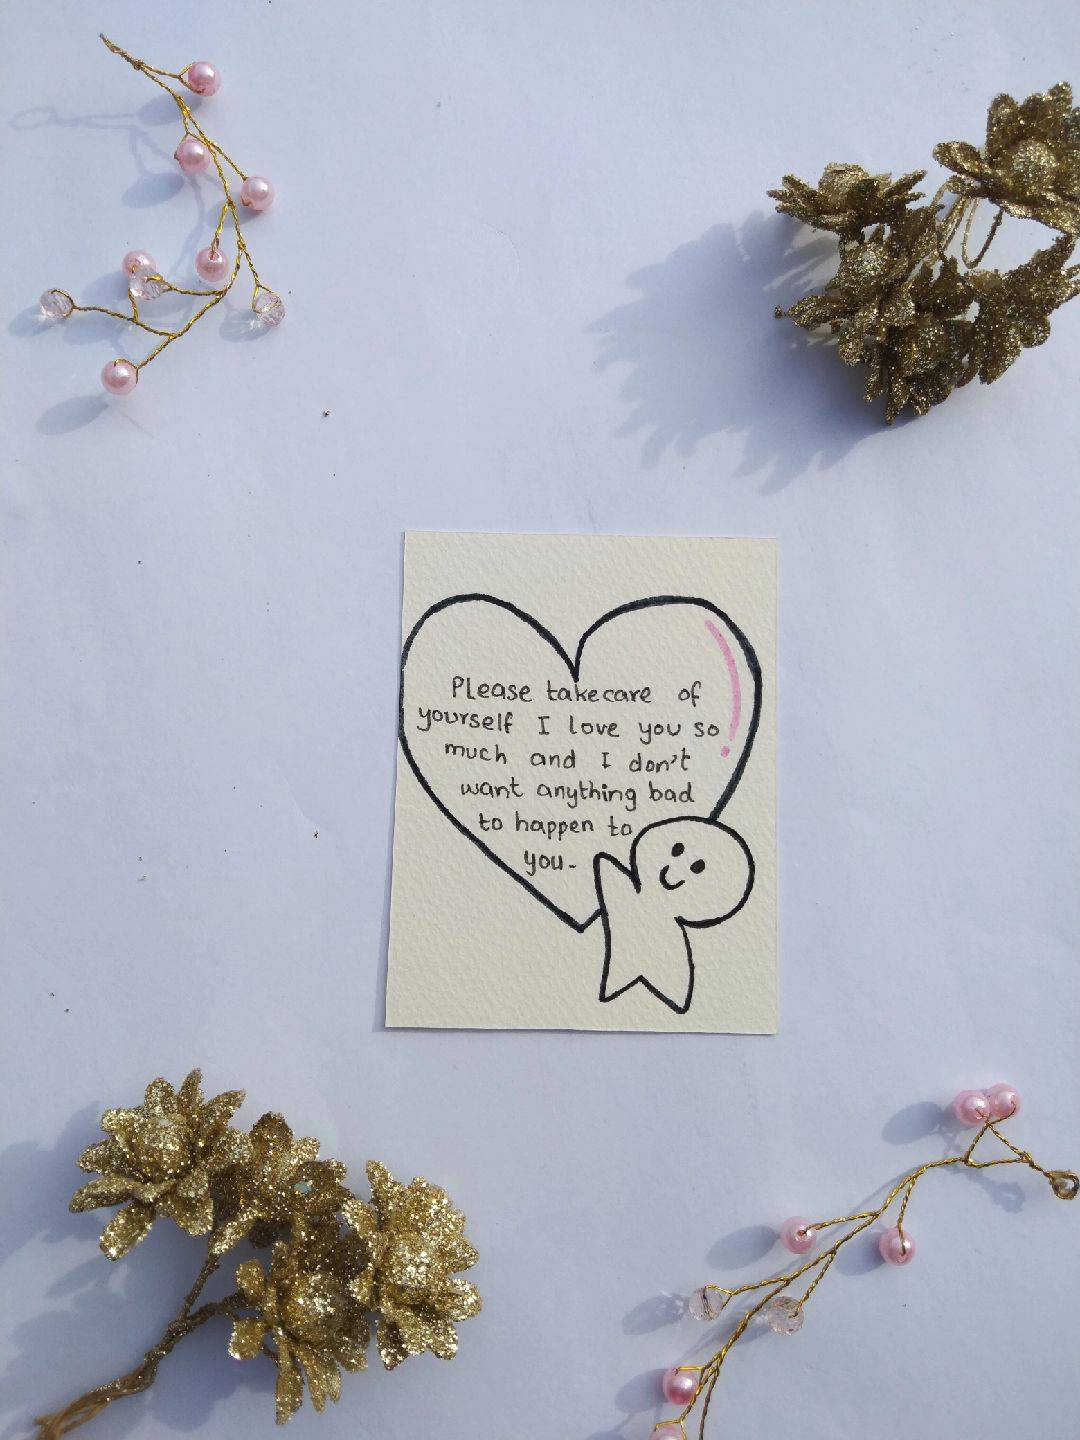 Please takecare of
yourself I love you so
much and I don't
want anything bad
to happen to
you-